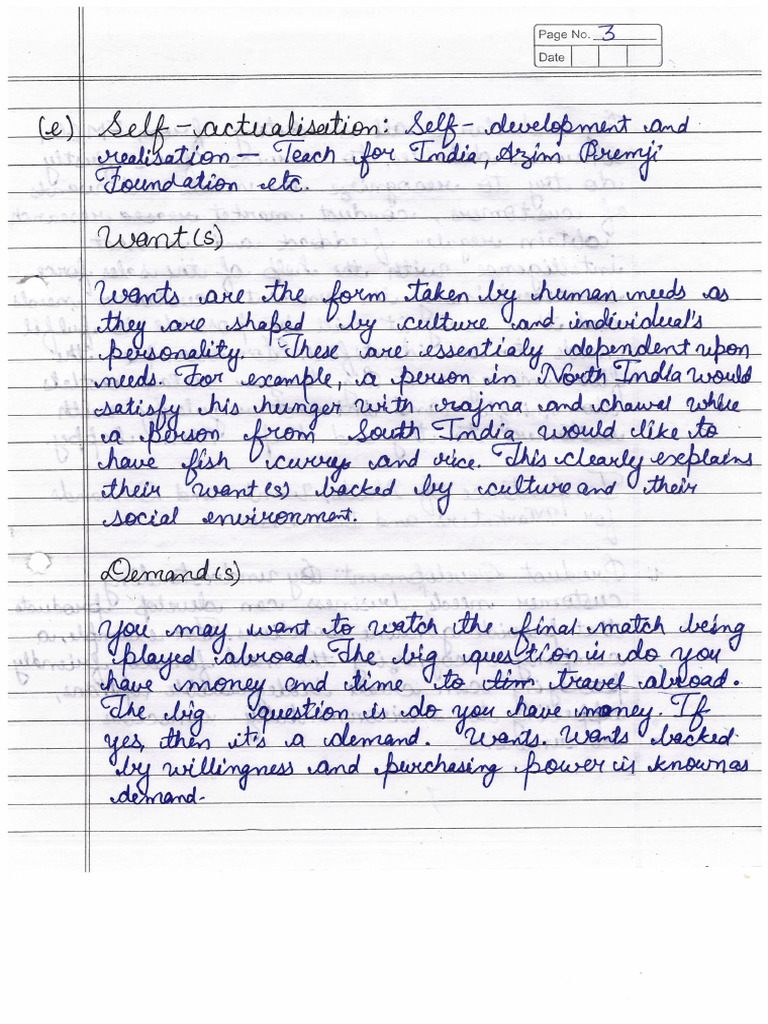 Page No. 3
Date
(e) Self-actualisation: Self-development and
realisation — Teach for India, Azim Premji
Foundation etc.
Want(s)
Wants are the form taken by human needs as
they are shaped by culture and individual's
personality. These are essentialy dependent upon
needs. For example, a person in North India would
satisfy his hunger with rajma and chawal while
a person from South India would like to
have fish curry and rice. This clearly explains
their want(s) backed by culture and their
social environment.
Demand(s)
You may want to watch the final match being
played abroad. The big question is do you
have money and time to tim travel abroad.
The big question is do you have money. If
yes, then it's a demand. Wants. Wants backed
by willingness and purchasing power is known as
demand.